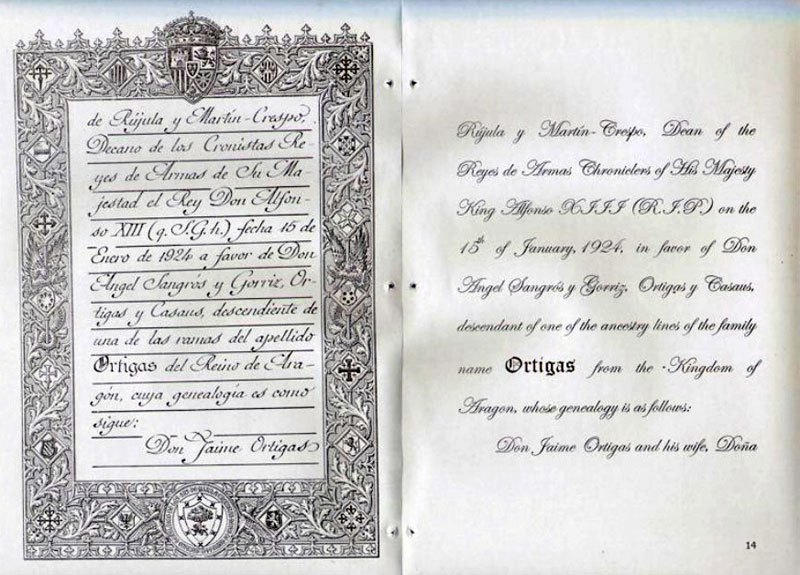 de Rújula y Martín-Crespo,
Decano de los Cronistas Re-
yes de Armas de Su Ma-
jestad el Rey Don Alfon-
so XIII (q. S. G. h.) fecha 15 de
Enero de 1924 a favor de Don
Angel Sangrós y Gorriz, Or-
tigas y Casaus, descendiente de
una de las ramas del apellido
Ortigas del Reino de Ara-
gón, cuya genealogía es como
sigue:
Don Jaime Ortigas
Rújula y Martín-Crespo, Dean of the
Reyes de Armas Chroniclers of His Majesty
King Alfonso XIII (R.I.P.) on the
15th of January, 1924, in favor of Don
Angel Sangrós y Gorriz, Ortigas y Casaus,
descendant of one of the ancestry lines of the family
name Ortigas from the Kingdom of
Aragon, whose genealogy is as follows:
Don Jaime Ortigas and his wife, Doña
14